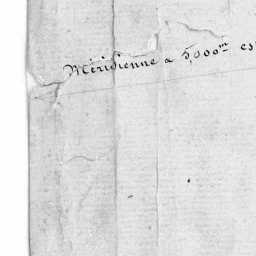 Méridienne a 5,000ᵐ es